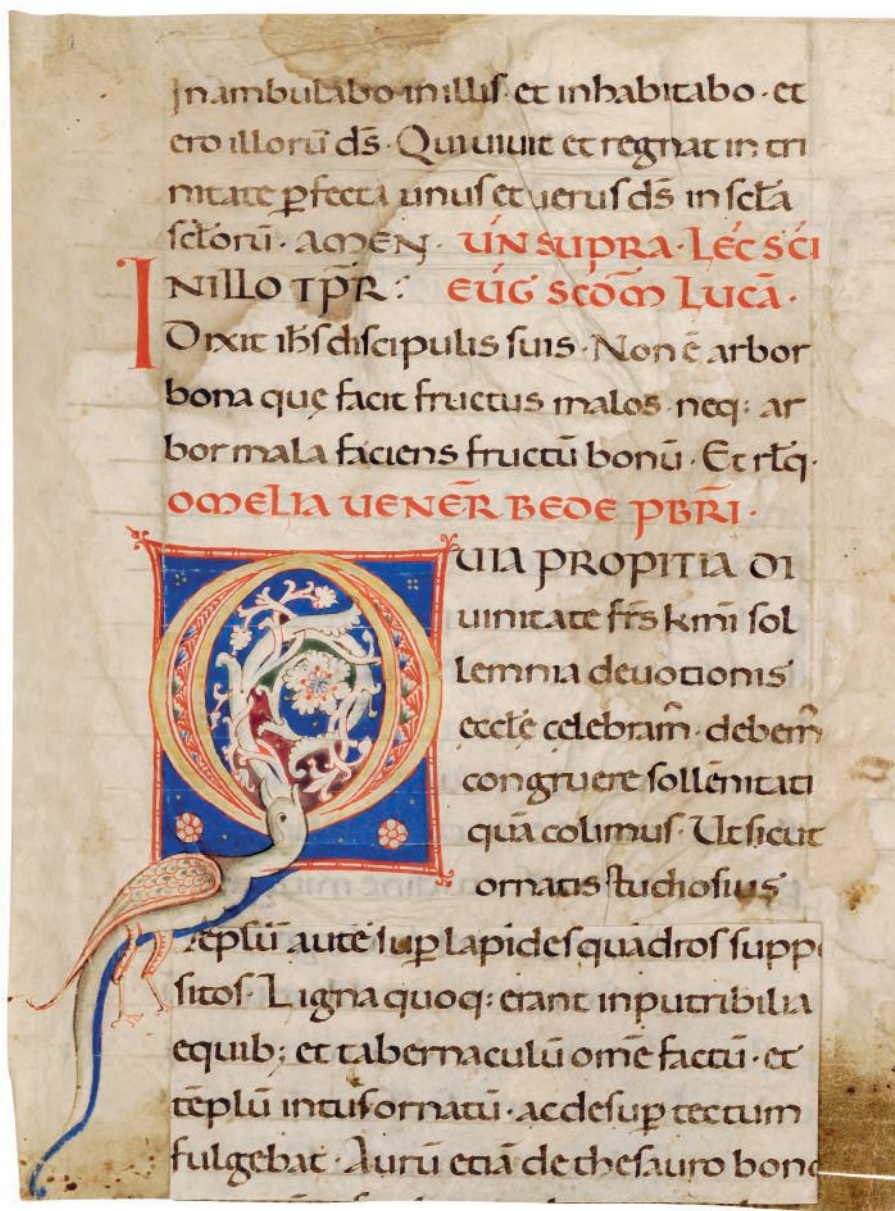 Inambulabo in illis · et inhabitabo · et
ero illorū d̄s · Qui uiuit et regnat in tri
nitate ꝑfecta unus et uerus d̄s in sc̄la
sc̄lorū · AMEN · UN SUPRA · LEC̄ SC̄I
INILLO TP̄R : EŪG SCD̄M LUCĀ ·
Dixit ih̄s discipulis suis · Non ē arbor
bona quę facit fructus malos · neq: ar
bor mala faciens fructū bonū · Et rl̄q ·
OMELIA UENER̄ BEDE PBR̄I ·
QUIA PROPITIA DI
uinitate fr̄s km̄i sol
lemnia deuotionis
eccl̄ę cęlebram̄ · debem̄
congruere sollēnitati
quā colimus · Ut sicut
ornatis studiosius
teplū autē suꝑ lapides quadros suppo
sitos · Ligna quoq: erant inputribilia
equib; et tabernaculū omē factū · et
tēplū intus ornatū · ac desuꝑ tectum
fulgebat · Aurū etiā de thesauro bono